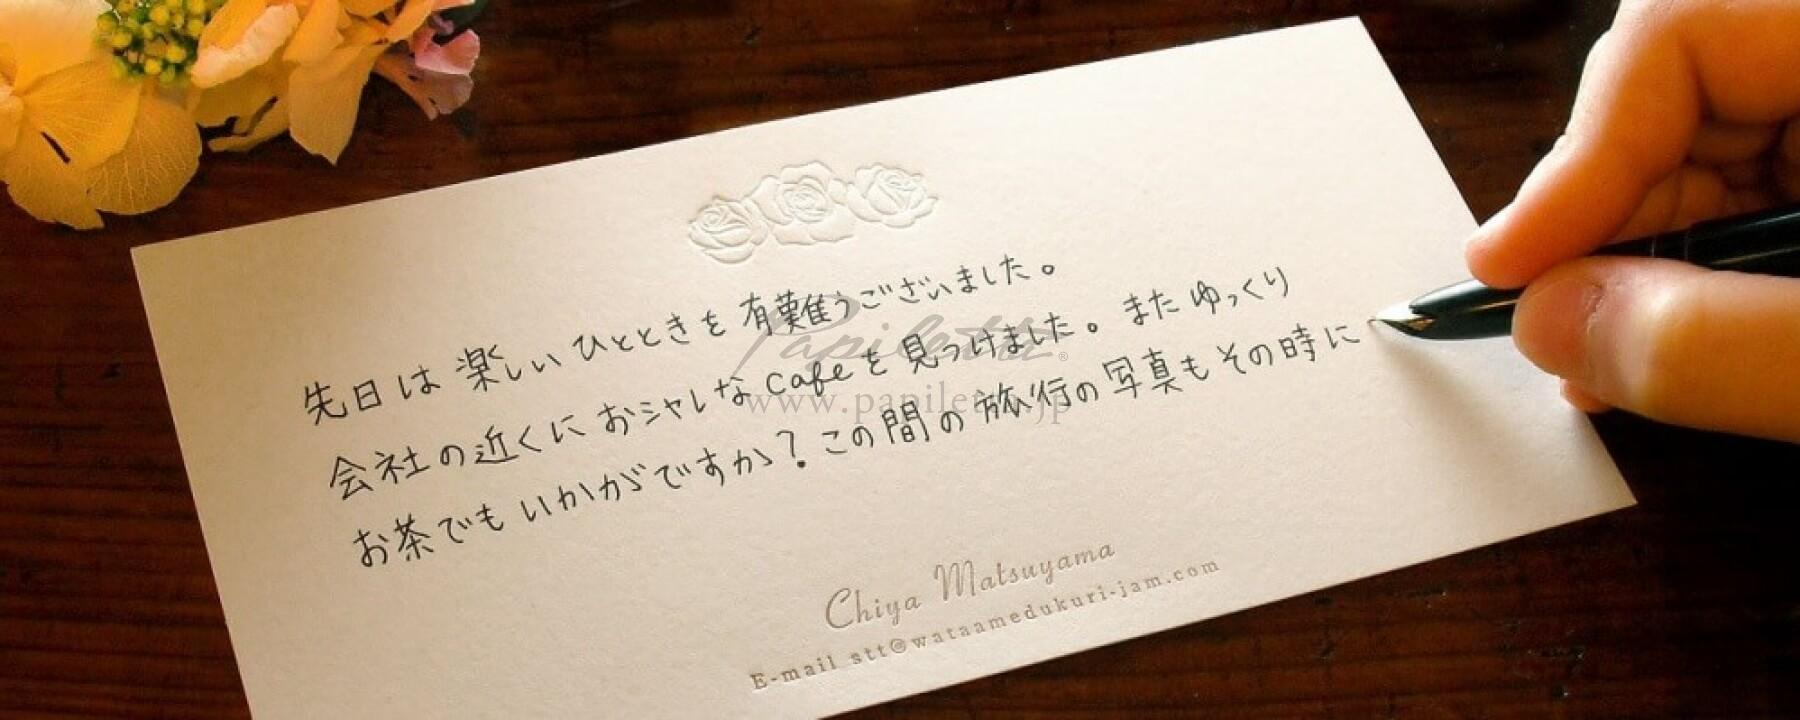 先日は楽しいひとときを有難うございました。
会社の近くにおシャレなcafeを見つけました。またゆっくり
お茶でもいかがですか?この間の旅行の写真もその時に
Papiletta®
www.papiletta.jp
Chiya Matsuyama
E-mail stt@wataamedukuri-jam.com